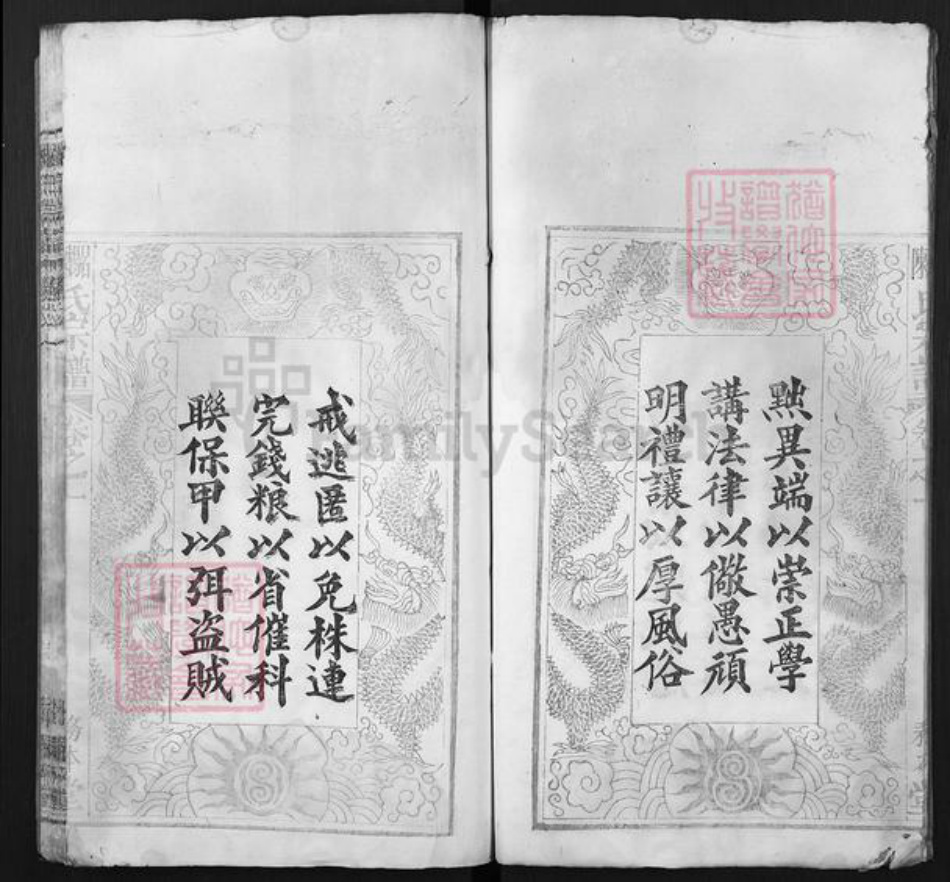 黜異端以崇正學
講法律以儆愚頑
明禮讓以厚風俗
戒逃匿以免株連
完錢粮以省催科
聯保甲以弭盗賊
氏宗譜
卷之一
FamilySearch